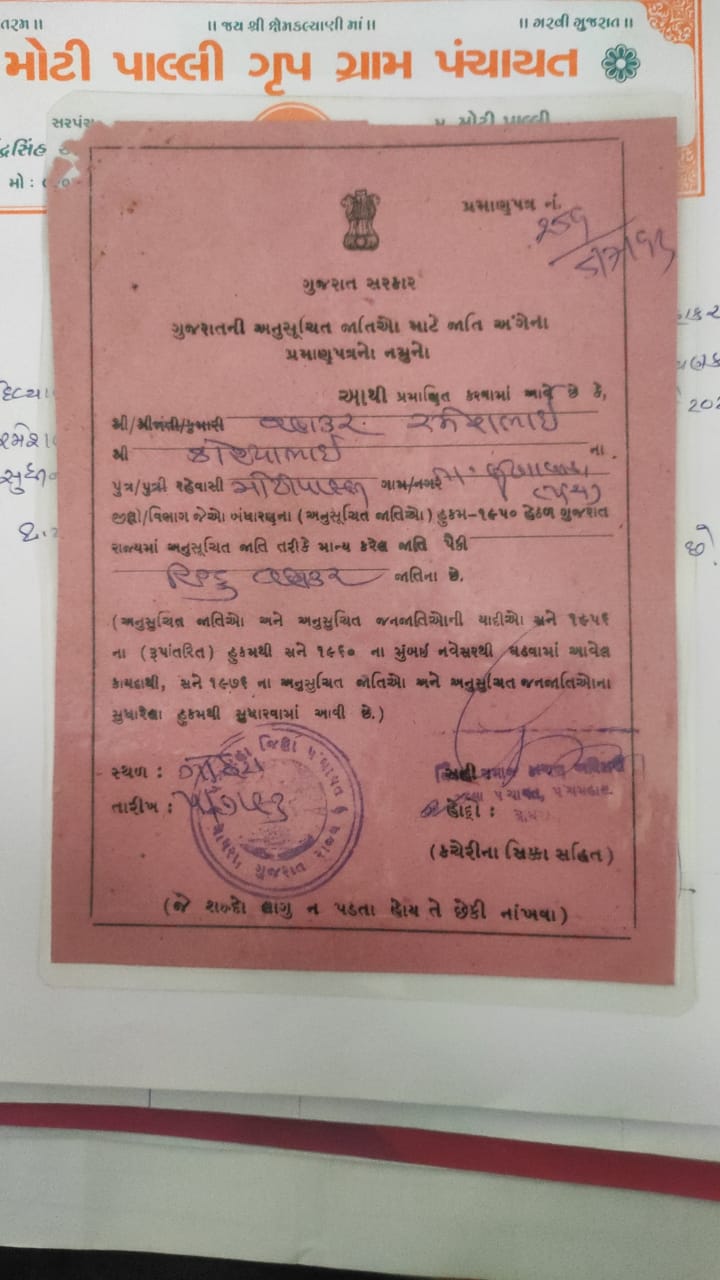 તરમ॥
॥ જય શ્રી ક્ષેમકલ્યાણી માં ॥
॥ ગરવી ગુજરાત ॥
મોટી પાલ્લી ગૃપ ગ્રામ પંચાયત
સરપંચ
મુ. મોટી પાલ્લી
દ્રસિંહ
મો :
પ્રમાણપત્ર નં.
ગુજરાત સરકાર
ગુજરાતની અનુસૂચિત જાતિઓ માટે જાતિ અંગેના
પ્રમાણપત્રનો નમુનો
આથી પ્રમાણિત કરવામાં આવે છે કે,
શ્રી/શ્રીમતી/કુમારી વણકર રમેશભાઈ
શ્રી ના
પુત્ર/પુત્રી રહેવાસી મોટીપાલ્લી ગામ/નગર
જીલ્લો/વિભાગ જેઓ બંધારણના (અનુસૂચિત જાતિઓ) હુકમ-૧૯૫૦ હેઠળ ગુજરાત
રાજ્યમાં અનુસૂચિત જાતિ તરીકે માન્ય કરેલ જાતિ પૈકી
હિન્દુ વણકર જાતિના છે.
(અનુસુચિત જાતિઓ અને અનુસુચિત જનજાતિઓની યાદીઓ સને ૧૯૫૬
ના (રૂપાંતરિત) હુકમથી સને ૧૯૬૦ ના મુંબઈ નવેસરથી ઘડવામાં આવેલ
કાયદાથી, સને ૧૯૭૬ ના અનુસુચિત જાતિઓ અને અનુસુચિત જનજાતિઓના
સુધારેલા હુકમથી સુધારવામાં આવી છે.)
સ્થળ :
સહી
તારીખ :
હોદ્દો :
જિલ્લા પંચાયત
ગુજરાત રાજ્ય
(કચેરીના સિક્કા સહિત)
(જે શબ્દો લાગુ ન પડતા હોય તે છેકી નાંખવા)